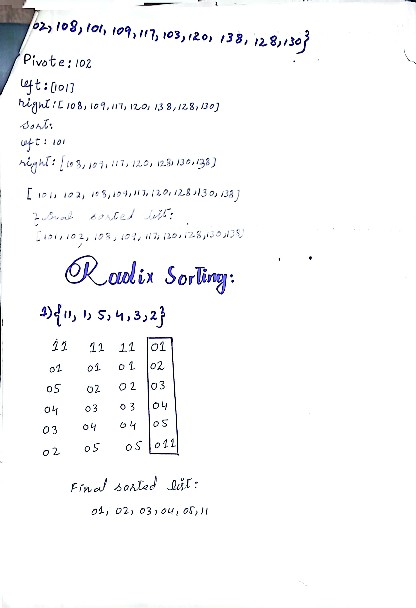 02, 108, 101, 109, 117, 103, 120, 138, 128, 130}
Pivote: 102
left: [101]
right: [108, 109, 117, 120, 138, 128, 130]
sort:
left: 101
right: [108, 109, 117, 120, 128, 130, 138]
[101, 102, 108, 109, 117, 120, 128, 130, 138]
Final sorted list:
[101, 102, 108, 109, 117, 120, 128, 130, 138]
Radix Sorting:
1) {11, 1, 5, 4, 3, 2}
11 11 11 01
01 01 01 02
05 02 02 03
04 03 03 04
03 04 04 05
02 05 05 011
Final sorted list:
01, 02, 03, 04, 05, 11